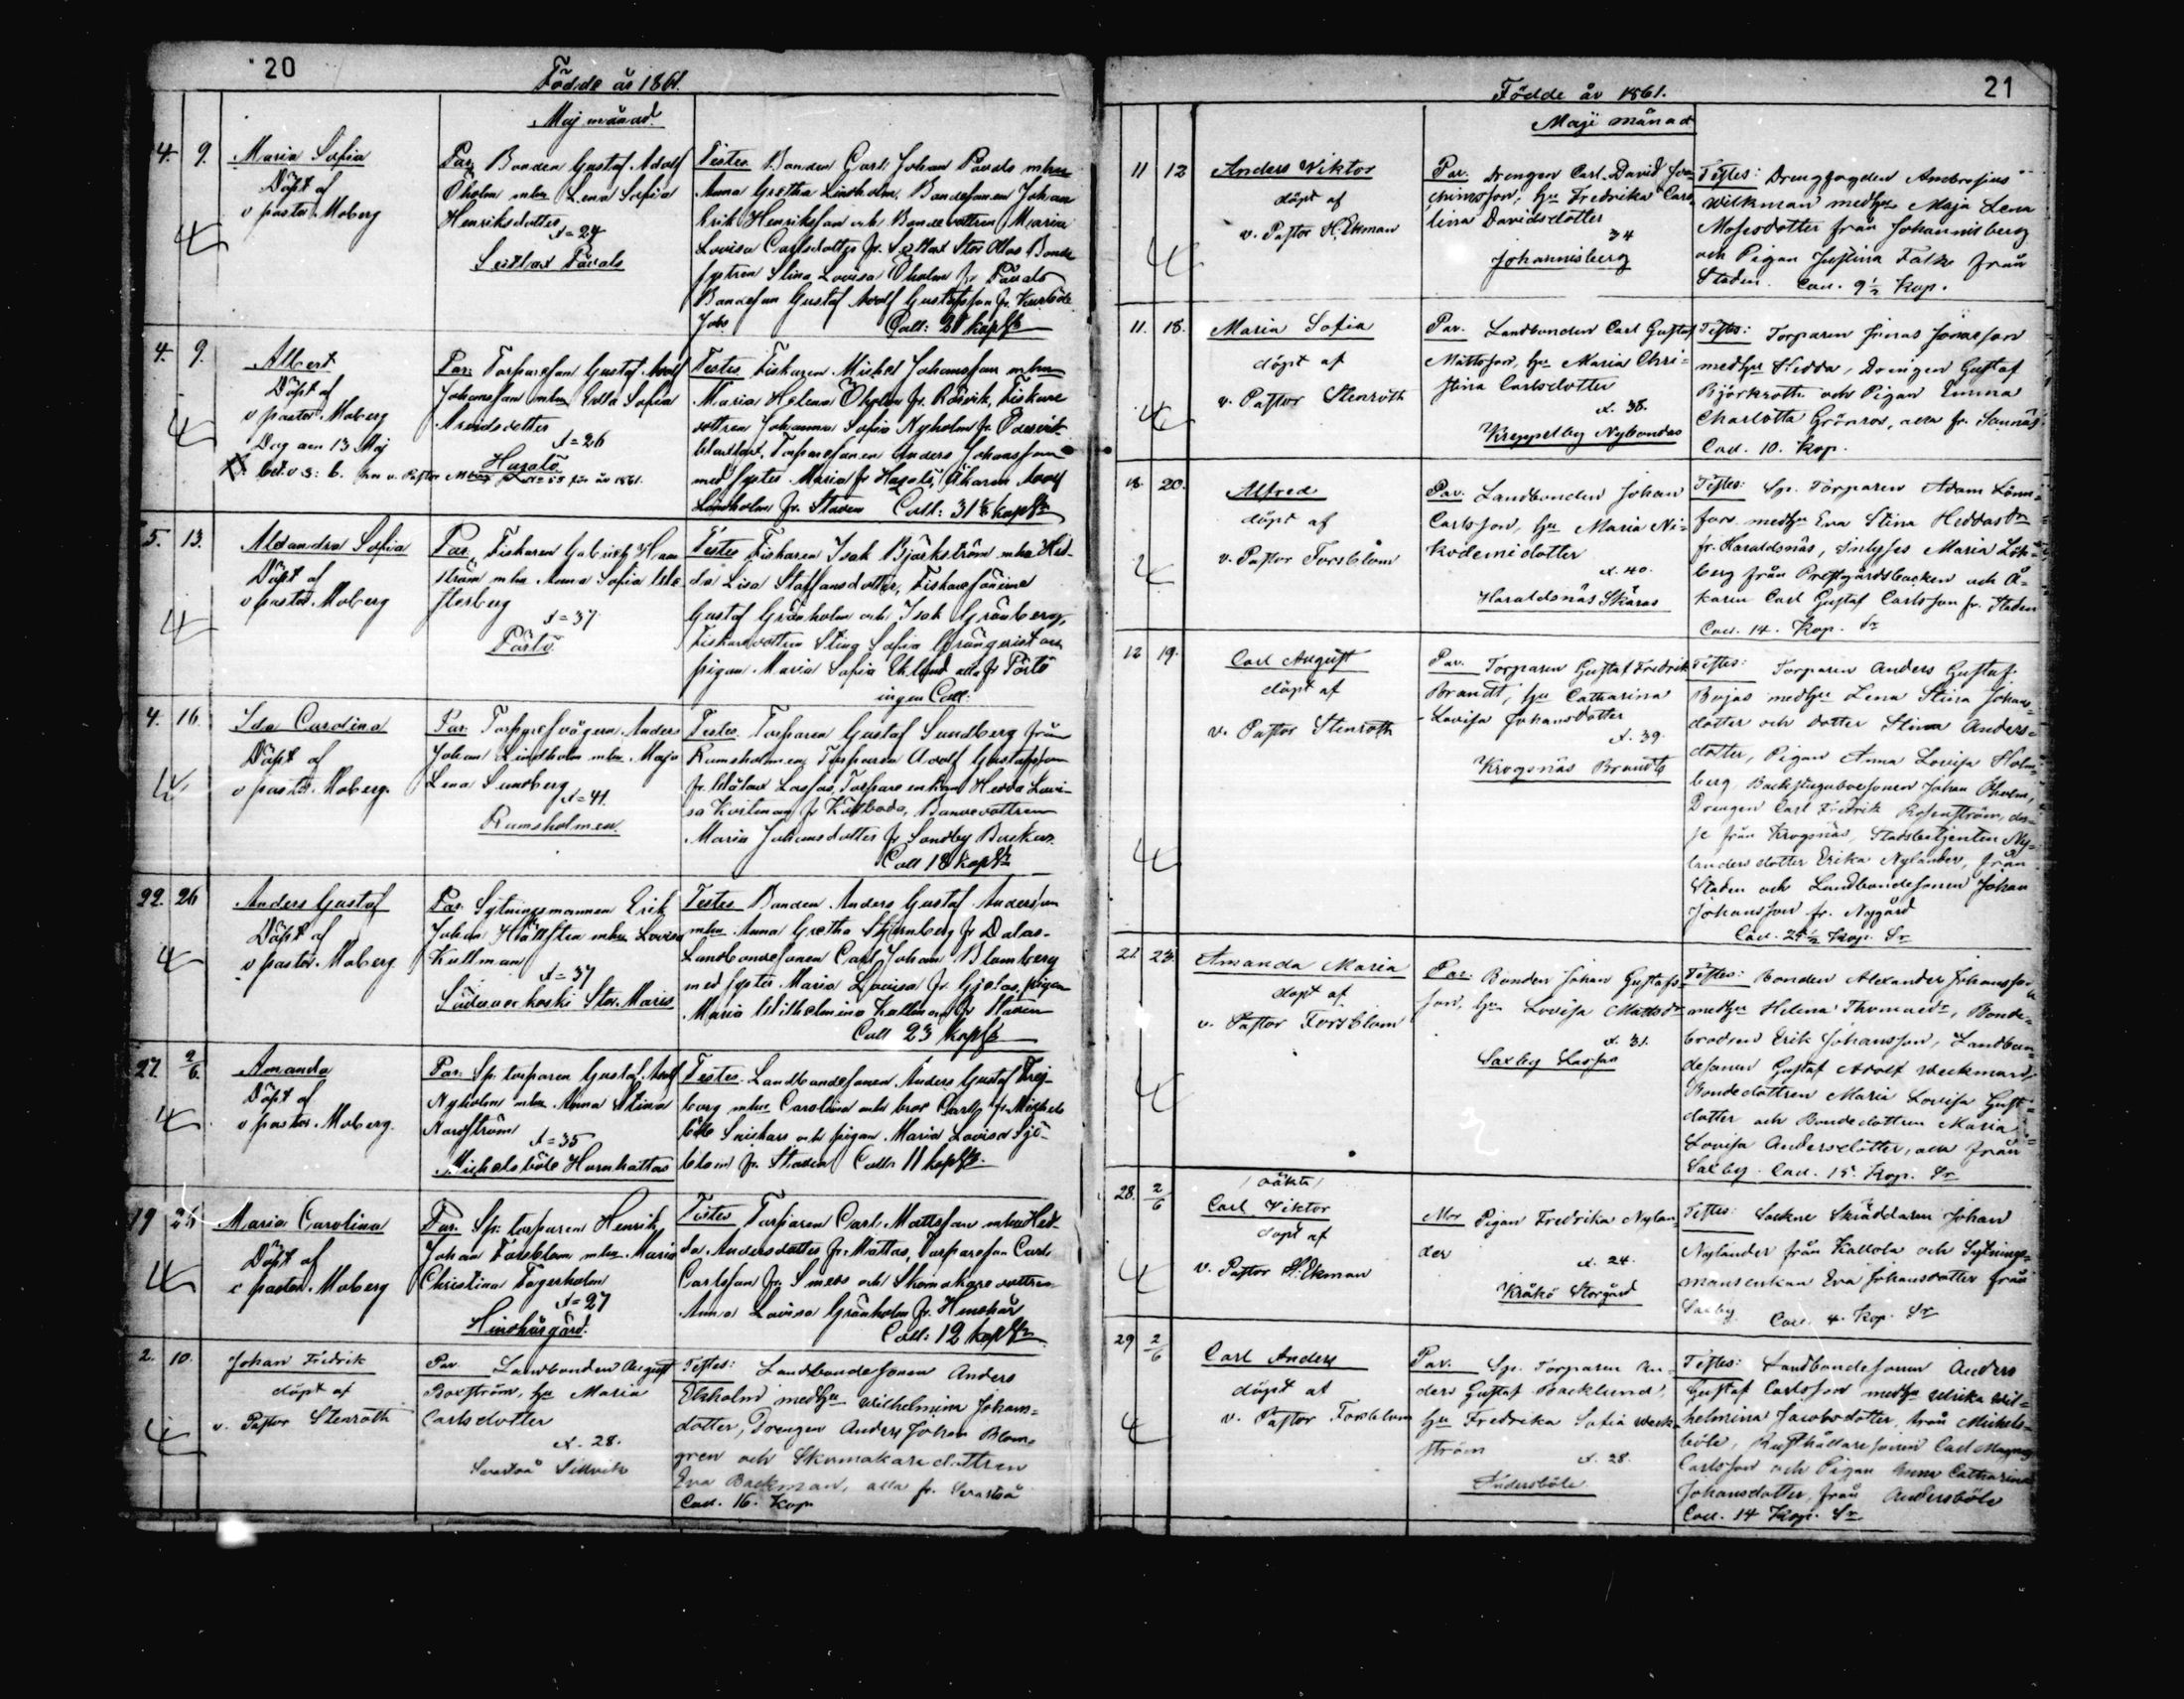 20
Födde år 1861.
Maj månad.
4. 9. Maria Sofia
Döpt af
v pastor Moberg
Par. Bonden Gustaf Adolf
Öholm mhu Lena Sofia
Henriksdotter
Æ=27
Seitlax Påvals
Testes Bonden Carl Johan Påvals mhu
Anna Gretha Lindholm, Bondesonen Johan
Erik Henriksson och Bondedottren Maria
Lovisa Carlsdotter fr. Seitlax Stor Olas Bonde
systren Stina Lovisa Öholm fr Påvals
Bondeson Gustaf Adolf Gustafsson fr.
Coll:
4. 9. Albert
Döpt af
v pastor Moberg
Dog den 13 Maj
Par. Torpareson Gustaf Adolf
Johansson mhu Ulla Sofia
Arvidsdotter
Æ=26
Testes Fiskaren Michel Johansson mhu
Maria Helena Öholm fr. Rösvik, Fiskare
dottren Johanna Sofia Nyholm fr.
Torparesonen Anders Johansson
med syster Maria fr Åkaren Adolf
Lindholm fr. Staden Coll: 31½ kop Sr
5. 13. Alexandra Sofia
Döpt af
v pastor Moberg
Par. Fiskaren Gabriel
mhu Anna Sofia
Æ=37
Pörtö
Testes Fiskaren Isak Björkström mhu Hed-
da Lisa Staffansdotter, Fiskaresönerne
Gustaf Grönholm och Isak Grönberg,
Fiskaredottren Stina Sofia Grönqvist och
pigan Maria Sofia Eklund alla fr Pörtö
ingen Coll:
4. 16. Ida Carolina
Döpt af
v pastor Moberg.
Par. Anders
Johan Lindholm mhu Maja
Lena Sundberg
Æ=41.
Ramsholmen
Testes. Torparen Gustaf Sundberg från
Ramsholmen, Torparen Adolf Gustafsson
fr. Torpare enkan Hedda Lovi-
sa Bondedottren
Maria Johansdotter fr. Sondby Backas.
Coll 18 kop Sr
22. 26 Anders Gustaf
Döpt af
v pastor Moberg
Par. Sytningsmannen Erik
Johan mhu Lovisa
Kullman
Æ=37
Stor. Maris
Testes Bonden Anders Gustaf Andersson
mhu Anna Gretha Stjernberg fr Dalas.
Landbondesonen Carl Johan Blomberg
med syster Maria Lovisa fr. pigan
Maria Wilhelmina Kullman fr Staden
Coll 23 kop Sr
27. 2/6. Amanda
Döpt af
v pastor Moberg.
Par. Sp. torparen Gustaf Adolf
Nyholm mhu Anna Stina
Nordström
Æ=35
Michelsböle Hornhattas
Testes. Landbondesonen Anders Gustaf Frej-
borg mhu Carolina och bror Carl fr. Michels
böle Snickars och pigan Maria Lovisa Sjö-
blom fr. Staden Coll. 11 kop Sr.
19 26 Maria Carolina
Döpt af
v pastor Moberg
Par. Sp. torparen Henrik
Johan Forsblom mhu Maria
Christina Fagerholm
Æ=27
Hindhårgård.
Testes Torparen Carl Mattsson mhu Hed-
da Andersdotter fr. Mattas, Torpareson Carl
Carlsson fr. Smeds och Skomakare dottren
Anna Lovisa Grönholm fr. Hindhår
Coll: 12 kop Sr.
2. 10. Johan Fredrik
döpt af
v. Pastor Stenroth
Par. Landbonden August
Boxström, hu Maria
Carlsdotter
æ. 28.
Svartså Sillvik
Testes: Landbondesonen Anders
Ekholm med hu Wilhelmina Johans=
dotter, Drengen Anders Johan Blom-
gren och Skomakaredottren
Eva Backman, alla fr. Svartså
Coll. 16. kop
21
Födde år 1861.
Maji månad
11 12 Anders Wiktor
döpt af
v. Pastor H. Ekman
Par. Drengen Carl David Joa-
chimsson, hu Fredrika Caro-
lina Davidsdotter
34
Johannisberg
Testes: Drengfogden Ambrosius
Wilkman med hu Maja Lena
Mosesdotter från Johannisberg
och Pigan Justina Falk från
Staden. Coll. 9½ Kop.
11. 18. Maria Sofia
döpt af
v. Pastor Stenroth
Par. Landbonden Carl Gustaf
Mattsson, hu Maria Chri-
stina Carlsdotter
æ. 38.
Kreppelby Nybondas
Testes: Torparen Jonas Jonasson
med hu Hedda, Drengen Gustaf
Björkroth och Pigan Emma
Charlotta Grönros, alla fr. Sannäs
Coll. 10. kop.
18. 20. Alfred
döpt af
v. Pastor Forsblom
Par. Landbonden Johan
Carlsson, hu Maria Ni-
kodemidotter
æ. 40.
Haraldsnäs Skäras
Testes: Sp. Torparen Adam Lönn-
fors med hu Eva Stina Heddasdr
fr. Haraldsnäs, Inhyses Maria Lök-
berg från Prestgårdsbacken och Å-
karen Carl Gustaf Carlsson fr. Staden
Coll. 14. Kop. Sr
12 19. Carl August
döpt af
v. Pastor Stenroth
Par. Torparen Gustaf Fredrik
Brandt, hu Catharina
Lovisa Johansdotter
æ. 39.
Krogsnäs Brandts
Testes: Torparen Anders Gustaf
Bojas med hu Lena Stina Johans-
dotter och dotter Stina Anders-
dotter, Pigan Anna Lovisa Holm-
berg Backstugubosonen Johan Öholm,
Drengen Carl Fredrik Rosenström, des-
se från Krogsnäs, Stadsbetjenten Ny-
landers dotter Erika Nylander, från
Staden och Landbondesonen Johan
Johansson fr. Nygård
Coll. 25½ Kop. Sr
21. 23. Amanda Maria
döpt af
v. Pastor Forsblom
Par. Bonden Johan Gustafs-
son, hu Lovisa Mattsdr
æ. 31.
Saxby Lassas
Testes: Bonden Alexander Johansson
med hu Helena Thomasdr, Bonde-
brodren Erik Johansson, Landbon-
desonen Gustaf Adolf Weckman,
Bondedottren Maria Lovisa Gust-
dotter och Bondedottren Maria
Lovisa Andersdotter, alla från
Saxby. Coll. 15. Kop. Sr
28. 2/6 /oäkta/
Carl Viktor
döpt af
v. Pastor H. Ekman
Mor Pigan Fredrika Nylan-
der
æ. 24.
Kråkö Storgård
Testes: Sockne Skräddaren Johan
Nylander från Kallola och Sytnings-
mansenkan Eva Johansdotter från
Saxby. Coll. 4. Kop. Sr
29 2/6 Carl Anders
döpt af
v. Pastor Forsblom
Par. Sp. Torparen An-
ders Gustaf Backlund,
hu Fredrika Sofia Weck-
ström
æ. 28.
Andersböle
Testes: Landbondesonen Anders
Gustaf Carlsson med hu Ulrika Wil-
helmina Jacobsdotter, från Michels-
böle, Rusthållaresonen Carl Magnus
Carlsson och Pigan Anna Catharina
Johansdotter, från Andersböle
Coll. 14 Kop. Sr